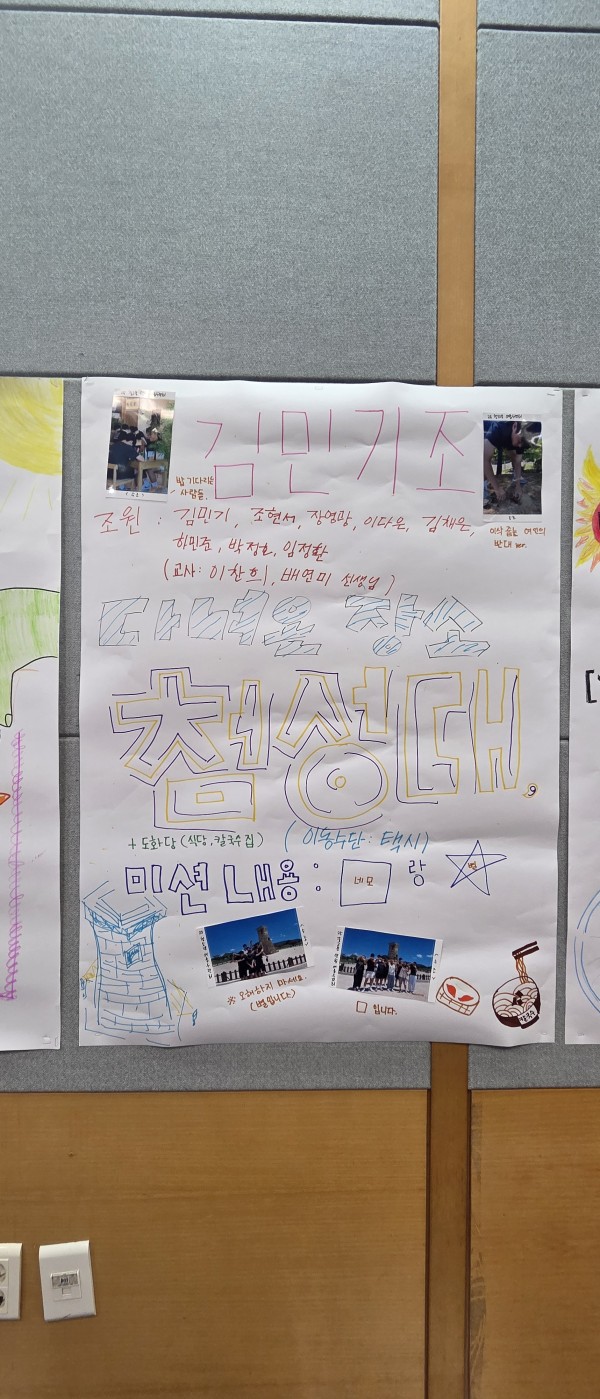 김민기조
밥 기다리는
사람들.
이삭 줍는 여인의
반대 ver.
조원 : 김민기, 조현서, 장영광, 이다은, 김채은,
하민준, 박정호, 임정환
(교사: 이찬희, 배연미 선생님)
다녀온 장소
첨성대
+ 도화당 (식당, 칼국수집)
(이동수단: 택시)
미션 내용 : 네모 랑 별
※ 오해하지 마세요.
(별입니다)
□ 입니다.
칼국수